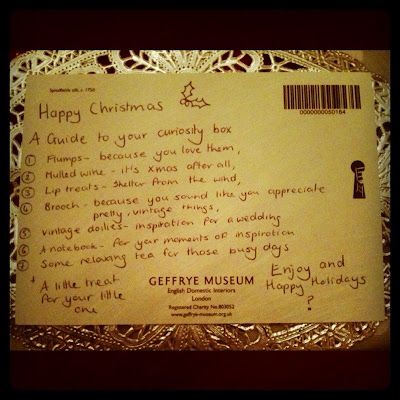 Spitalfields silk, c. 1750
0000000050184
Happy Christmas
A Guide to your curiosity box
1 Flumps - because you love them,
2 Mulled wine - it's xmas after all,
3 Lip treats - Shelter from the wind,
4 Brooch - because you sound like you appreciate
pretty, vintage things,
5 vintage doilies - inspiration for a wedding
6 A notebook - for your moments of inspiration
7 Some relaxing tea for those busy days
+ A little treat
for your little
one
GEFFRYE MUSEUM
English Domestic Interiors
London
Registered Charity No.803052
www.geffrye-museum.org.uk
Enjoy and
Happy Holidays
?